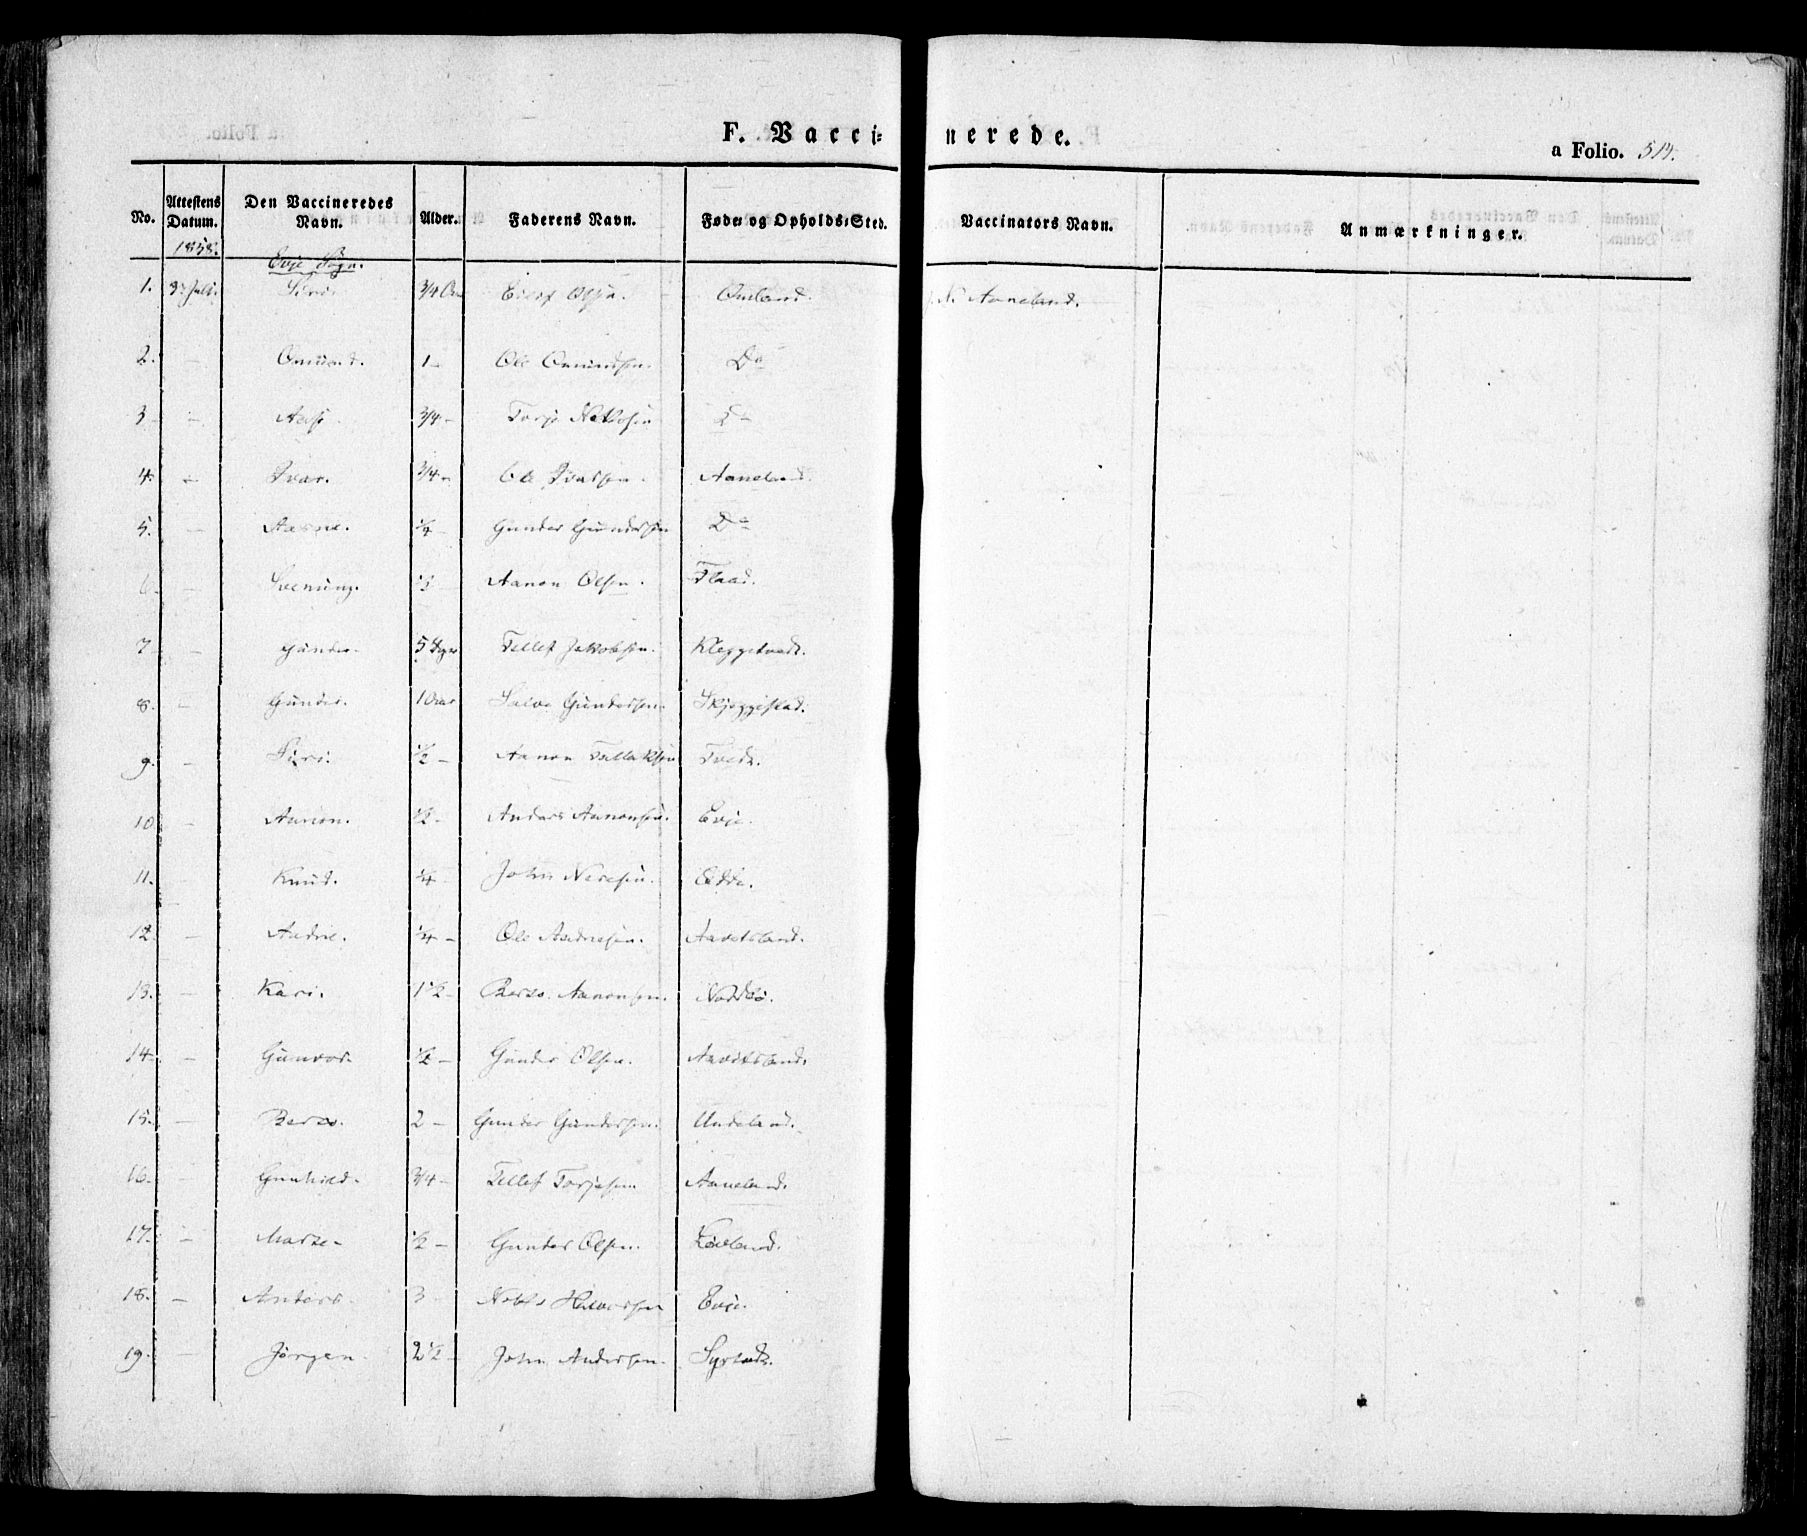 F. Vacci=nerede.
a Folio. 514.
No. Attestens Datum. Den Vaccineredes Navn. Alder. Faderens Navn. Føde= og Opholds=Sted. Vaccinators Navn. Anmærkninger.
1858.
Evje Sogn.
1. Siri. 3/4 Eilef Olsen. Omland. N. Aaneland.
2. — Omund. 1 — Ole Omundsen. Do
3 — 3/4 — Torje Do
4. — Ivar. 3/4 — Ole Ivarsen. Aaneland.
5. — Aasne. 1/4 — Gunder Gundersen Do
6 — Svenung. Aanon Olsen. Flaad.
7 — Gunder. 5 Tellef Jakobsen.
8. — Gunder. 1 Salve Gundersen. Skjeggestad.
9. — Siri. 1/2 — Aanon Tellaksen Tvedt.
10 — Aanon. 1/2 — Anders Aanonsen. Evje.
11. — Knud. 1/4 — John
12. — Andre. 1/4 — Ole Andresen. Aavitsland.
13. — Kari. 1 1/2 — Aanonsen.
14. — Gunvor. 1/2 — Gunder Olsen. Aavitsland.
15. — 2 — Gunder Gundersen.
16. — Gunhild. 3/4 — Tellef Torjesen Aaneland.
17. — 1/2 — Gunder Olsen.
18. — Anders. 3 — Halvorsen Evje.
19. — Jørgen. 2 1/2 — John Andersen. Syrtvedt.